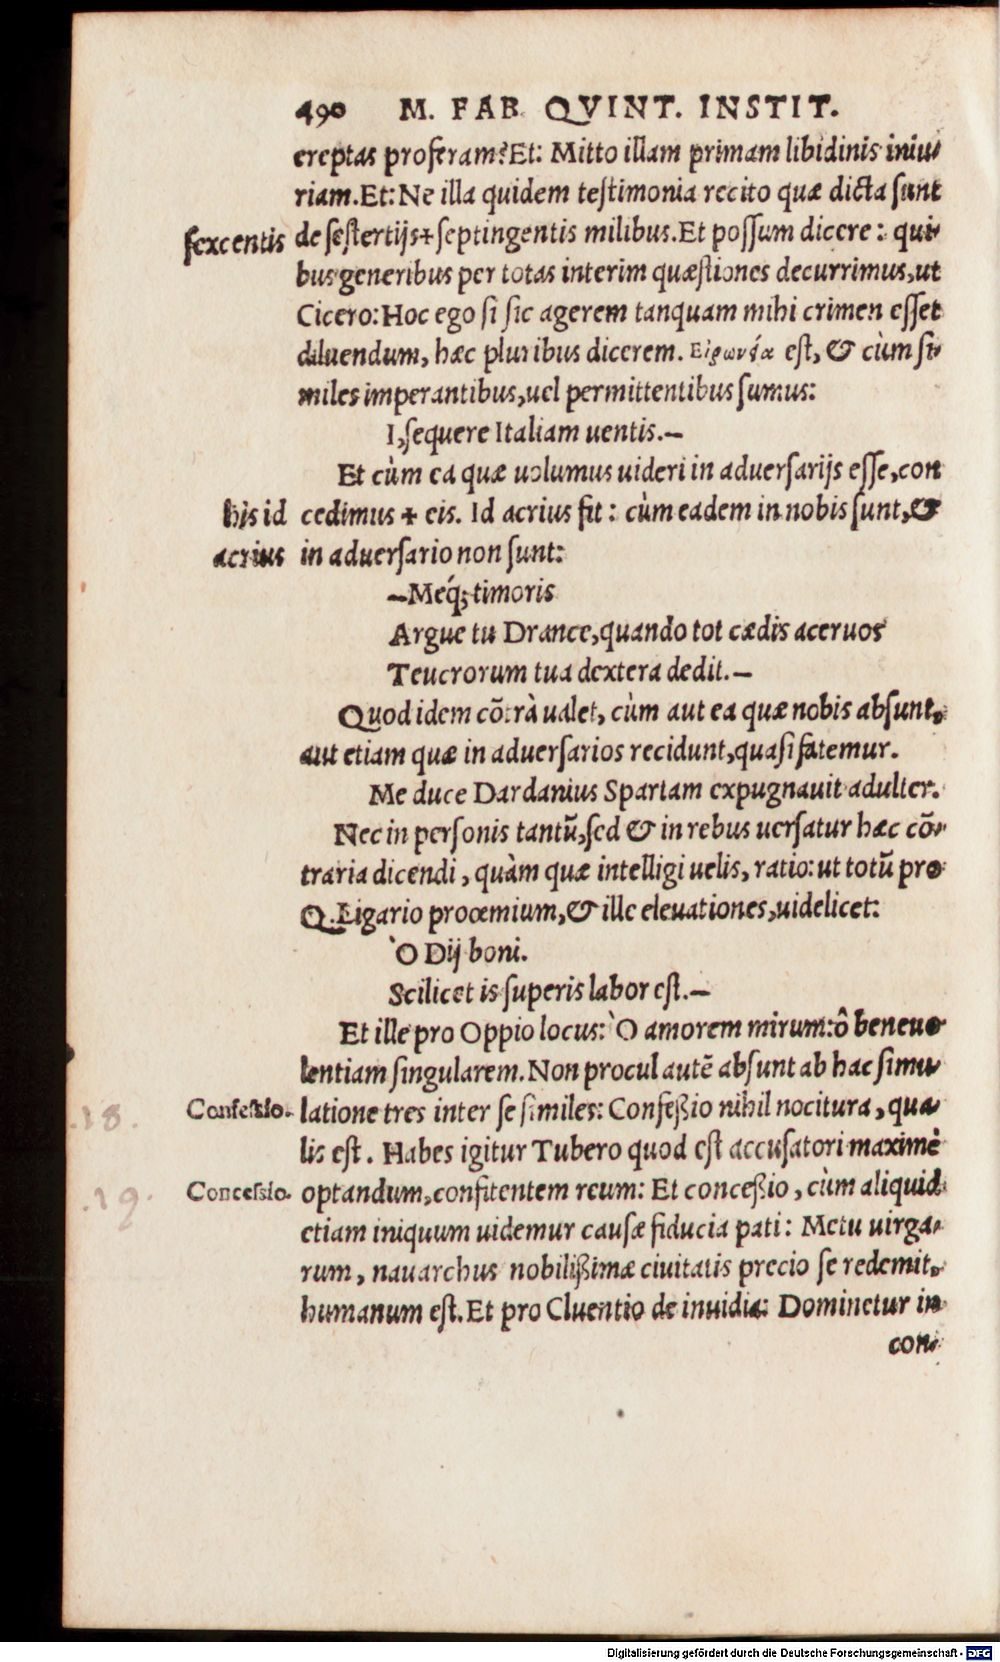 490 M. FAB. QVINT. INSTIT.
ereptas proferam? Et: Mitto illam primam libidinis iniu-
riam. Et: Ne illa quidem testimonia recito quæ dicta sunt
sexcentis de sestertijs + septingentis milibus. Et possum dicere: qui-
bus generibus per totas interim quæstiones decurrimus, ut
Cicero: Hoc ego si sic agerem tanquam mihi crimen esset
diluendum, hæc pluribus dicerem. Εἰρωνεία est, & cùm si-
miles imperantibus, uel permittentibus sumus:
I, sequere Italiam uentis.—
Et cùm ea quæ uolumus uideri in aduersarijs esse, con
his id cedimus + eis. Id acrius fit: cùm eadem in nobis sunt, &
acrius in aduersario non sunt:
—Meq́; timoris
Argue tu Drance, quando tot cædis aceruos
Teucrorum tua dextera dedit.—
Quod idem cõtrà ualet, cùm aut ea quæ nobis absunt,
aut etiam quæ in aduersarios recidunt, quasi fatemur.
Me duce Dardanius Spartam expugnauit adulter.
Nec in personis tantũ, sed & in rebus uersatur hæc cõ-
traria dicendi, quàm quæ intelligi uelis, ratio: ut totũ pro
Q. Ligario proœmium, & ille eleuationes, uidelicet:
Ὸ Dij boni.
Scilicet is superis labor est.—
Et ille pro Oppio locus: Ὸ amorem mirum: ô beneuo
lentiam singularem. Non procul autẽ absunt ab hac simu-
.18. Confessio. latione tres inter se similes: Confeßio nihil nocitura, qua-
lis est. Habes igitur Tubero quod est accusatori maximè
.19. Concessio. optandum, confitentem reum: Et conceßio, cùm aliquid
etiam iniquum uidemur causæ fiducia pati: Metu uirga-
rum, nauarchus nobilißimæ ciuitatis precio se redemit,
humanum est. Et pro Cluentio de inuidia: Dominetur in
con-
Digitalisierung gefördert durch die Deutsche Forschungsgemeinschaft - DFG